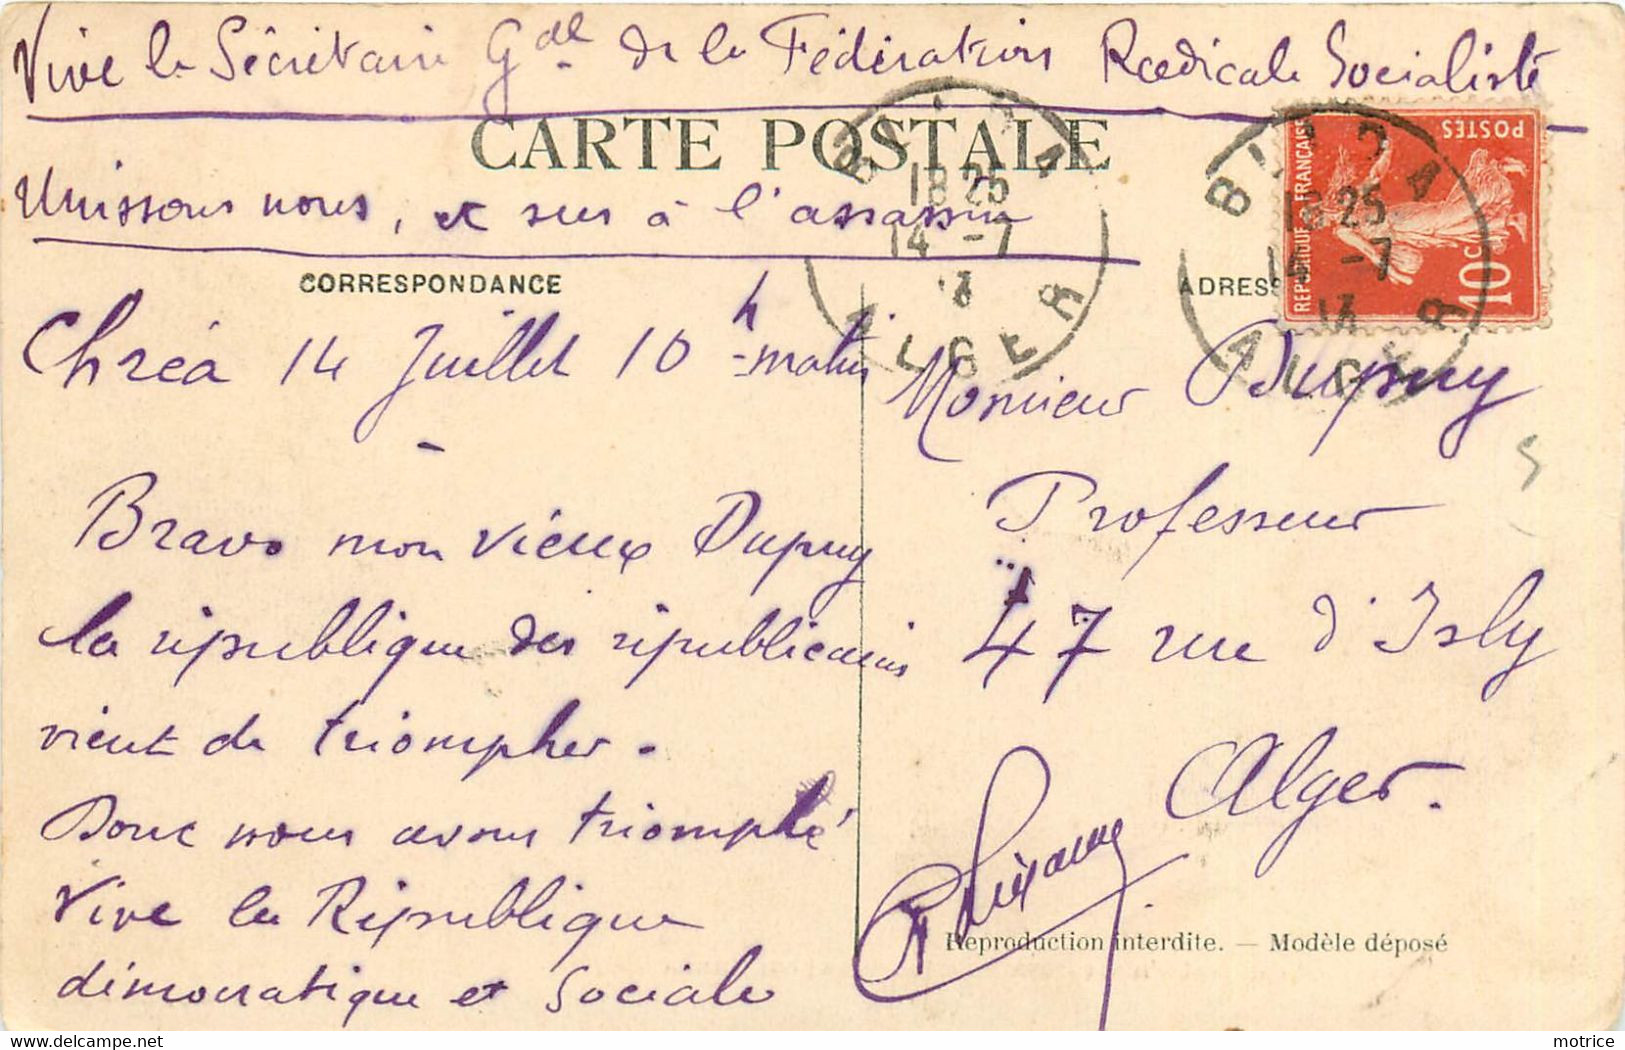 Vive le Sécrétaire Gdl de la Fédération Radicale Socialiste
CARTE POSTALE
Unissons nous, et sus à l'assassin
CORRESPONDANCE
ADRESS
POSTES
REPUBLIQUE FRANÇAISE
10c
18 25
14 -7
ALGER
18 25
14 -7
13
ALGER
Chréa 14 Juillet 10 h matin
Monsieur Dupuy
Professeur
47 rue d'Isly
Alger.
Bravo mon vieux Dupuy
la république des républicains
vient de triompher.
Donc nous avons triomphé
Vive la République
démocratique et Sociale
Reproduction interdite. — Modèle déposé
https://www.delcampe.net
motrice